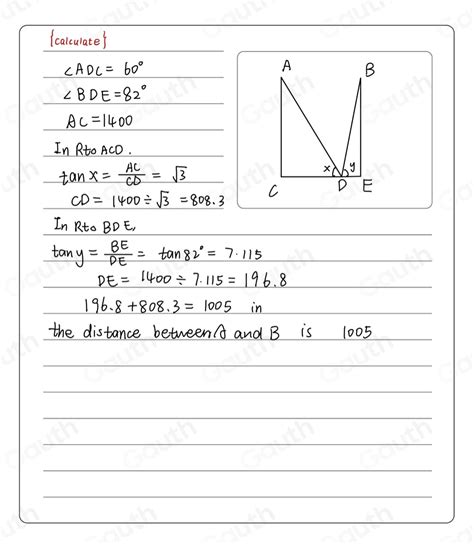 {calculate}
∠ADC = 60°
∠BDE = 82°
AC = 1400
In Rt∆ ACD.
tan x = AC/CD = √3
CD = 1400 ÷ √3 = 808.3
In Rt∆ BDE,
tan y = BE/DE = tan 82° = 7.115
DE = 1400 ÷ 7.115 = 196.8
196.8 + 808.3 = 1005 in
the distance between A and B is 1005
A
B
x
y
C
D
E
Gauth